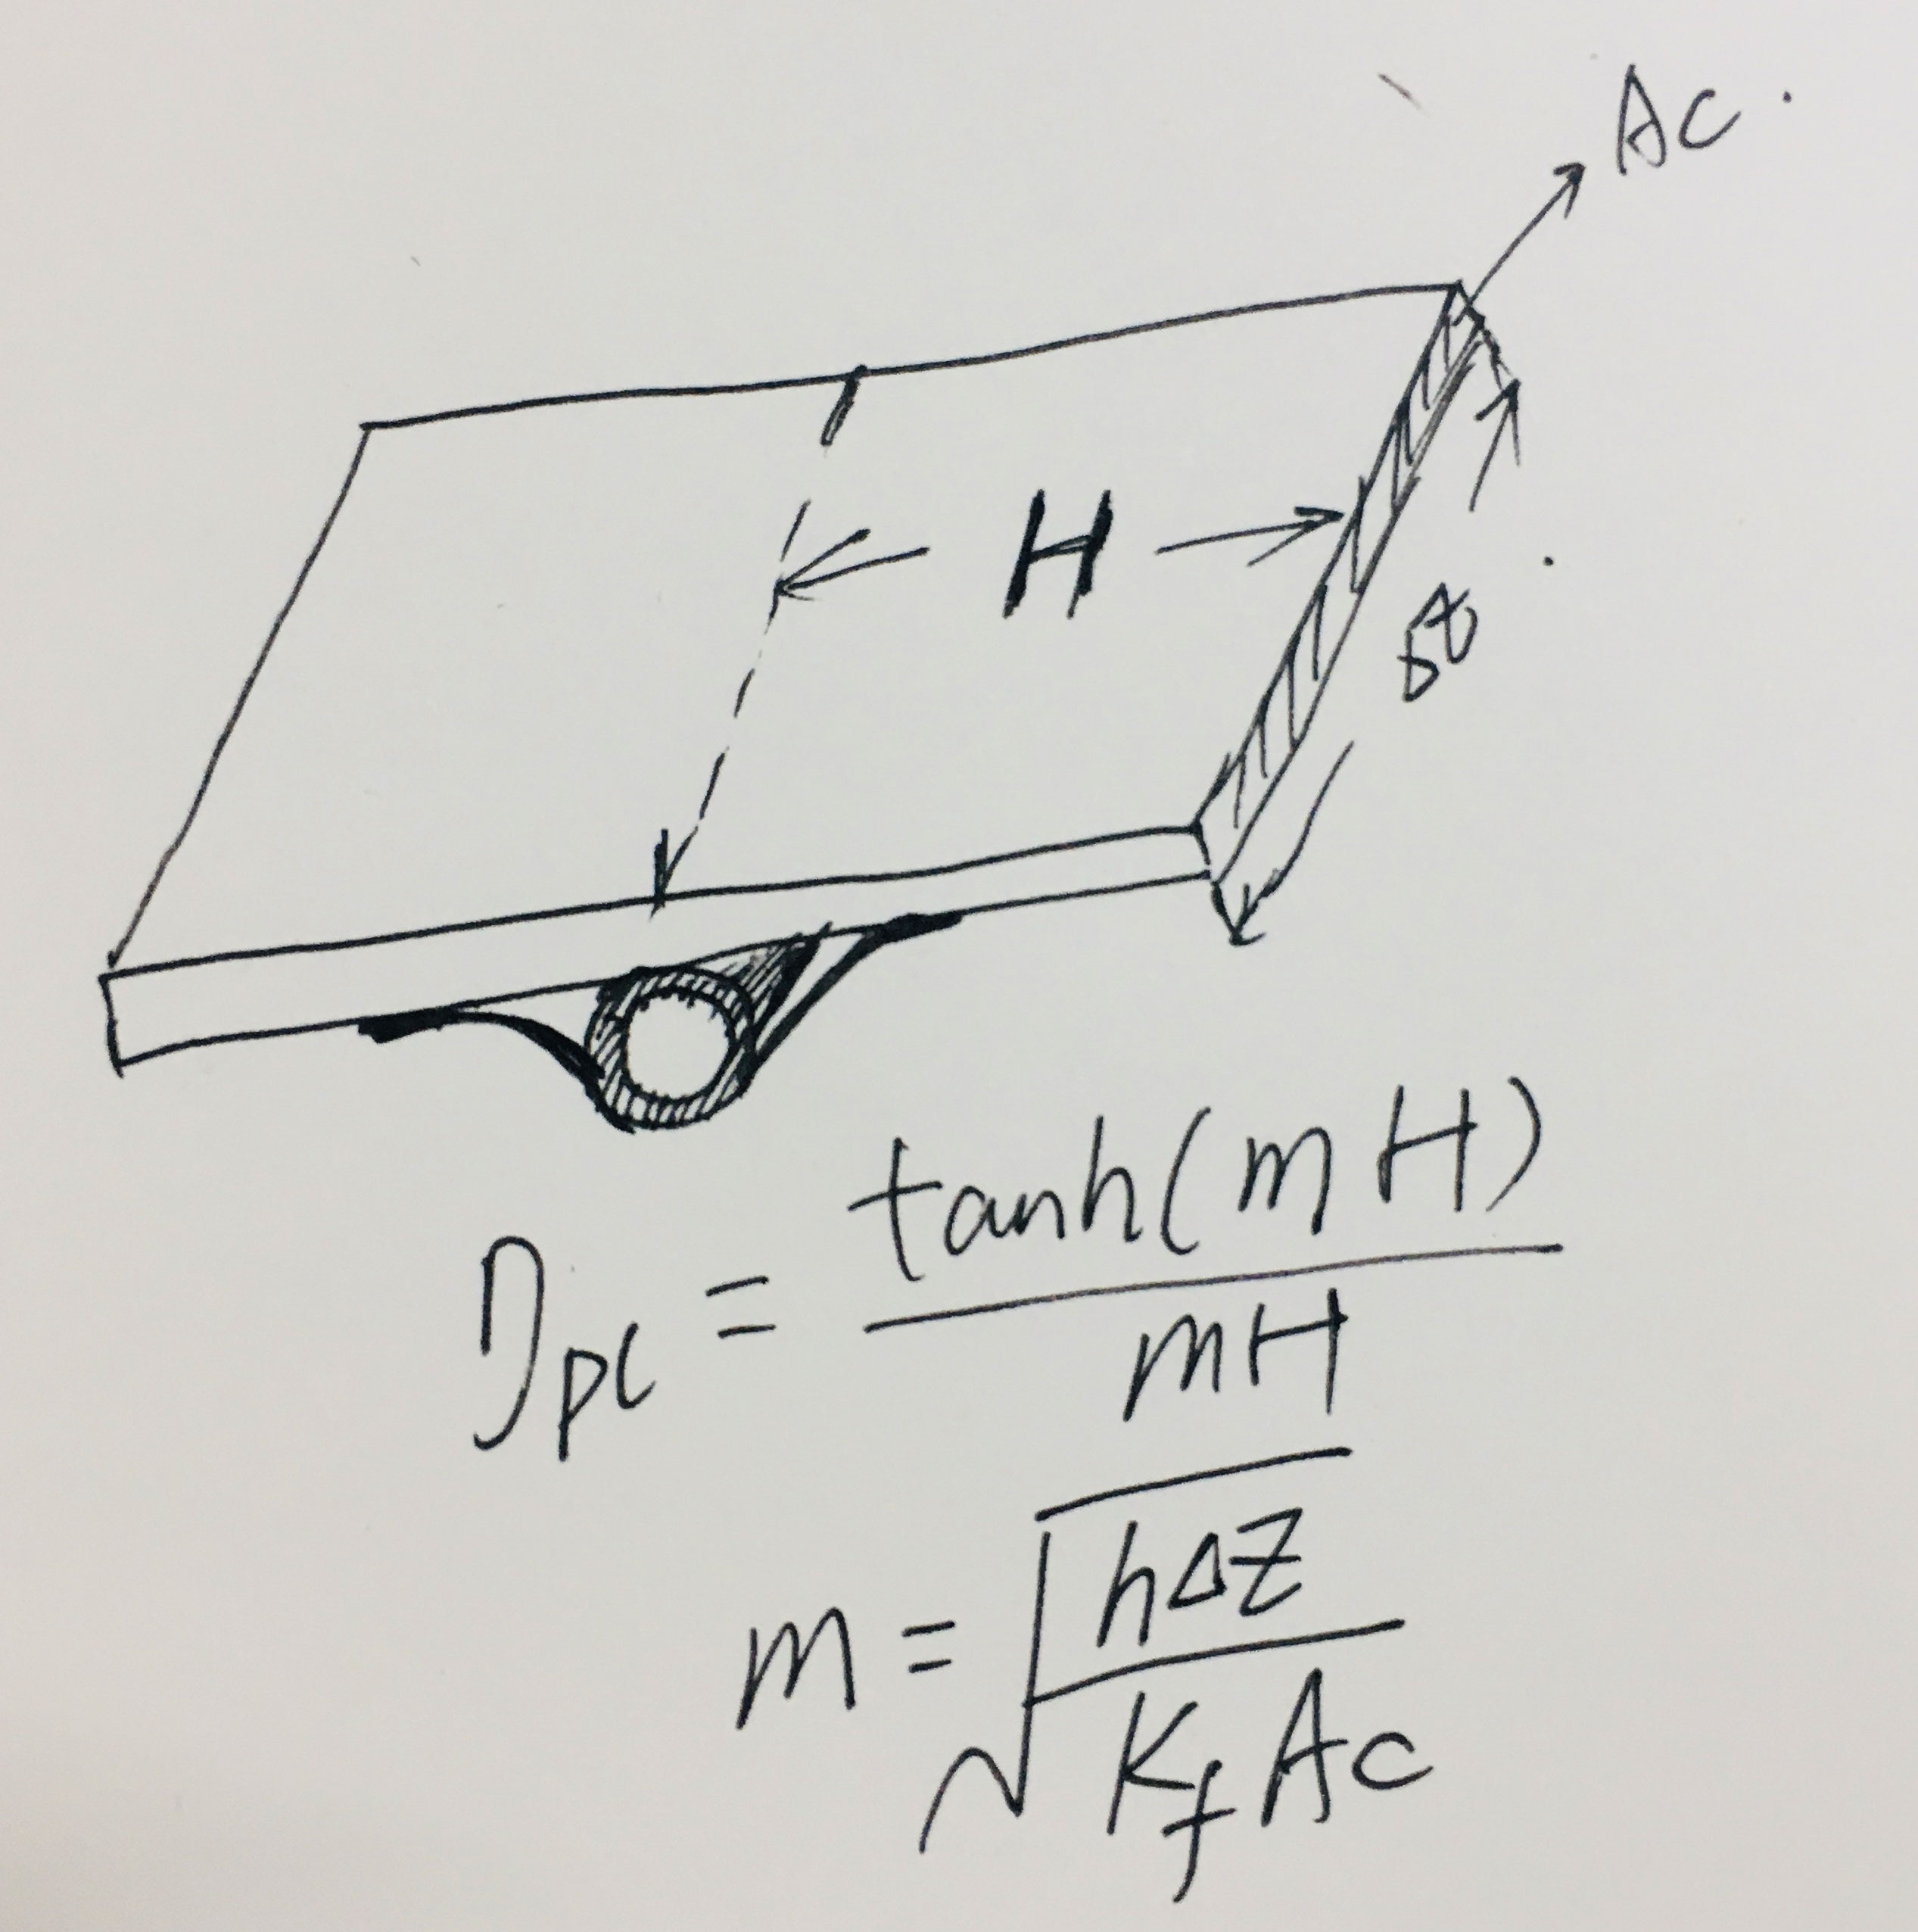 Ac
H
ηpc = tanh(mH) / mH
m = √(hΔZ / KfAc)